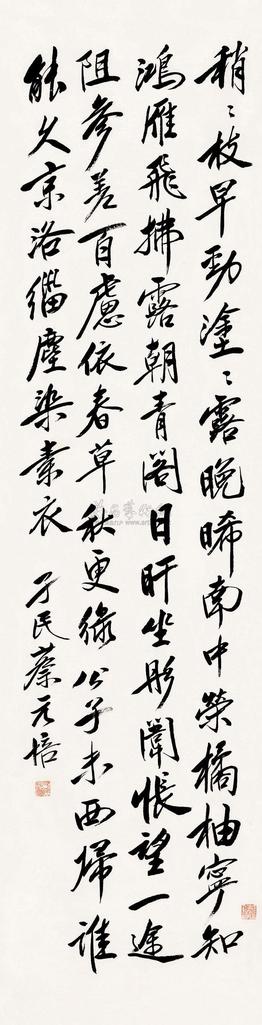 稍〻枝早劲塗〻露晚晞南中榮橘柚寧知
鴻雁飛拂露朝青閣日旰坐彤闈悵望一途
阻參差百慮依春草秋更綠公子未西歸誰
能久京洛緇塵染素衣 孑民蔡元培